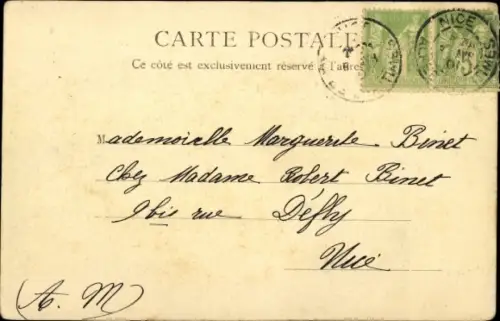 CARTE POSTALE
Ce côté est exclusivement réservé à l'adresse
NICE
Mademoiselle Marguerite Binet
Chez Madame Robert Binet
9 bis rue Défly
Nice
A. M